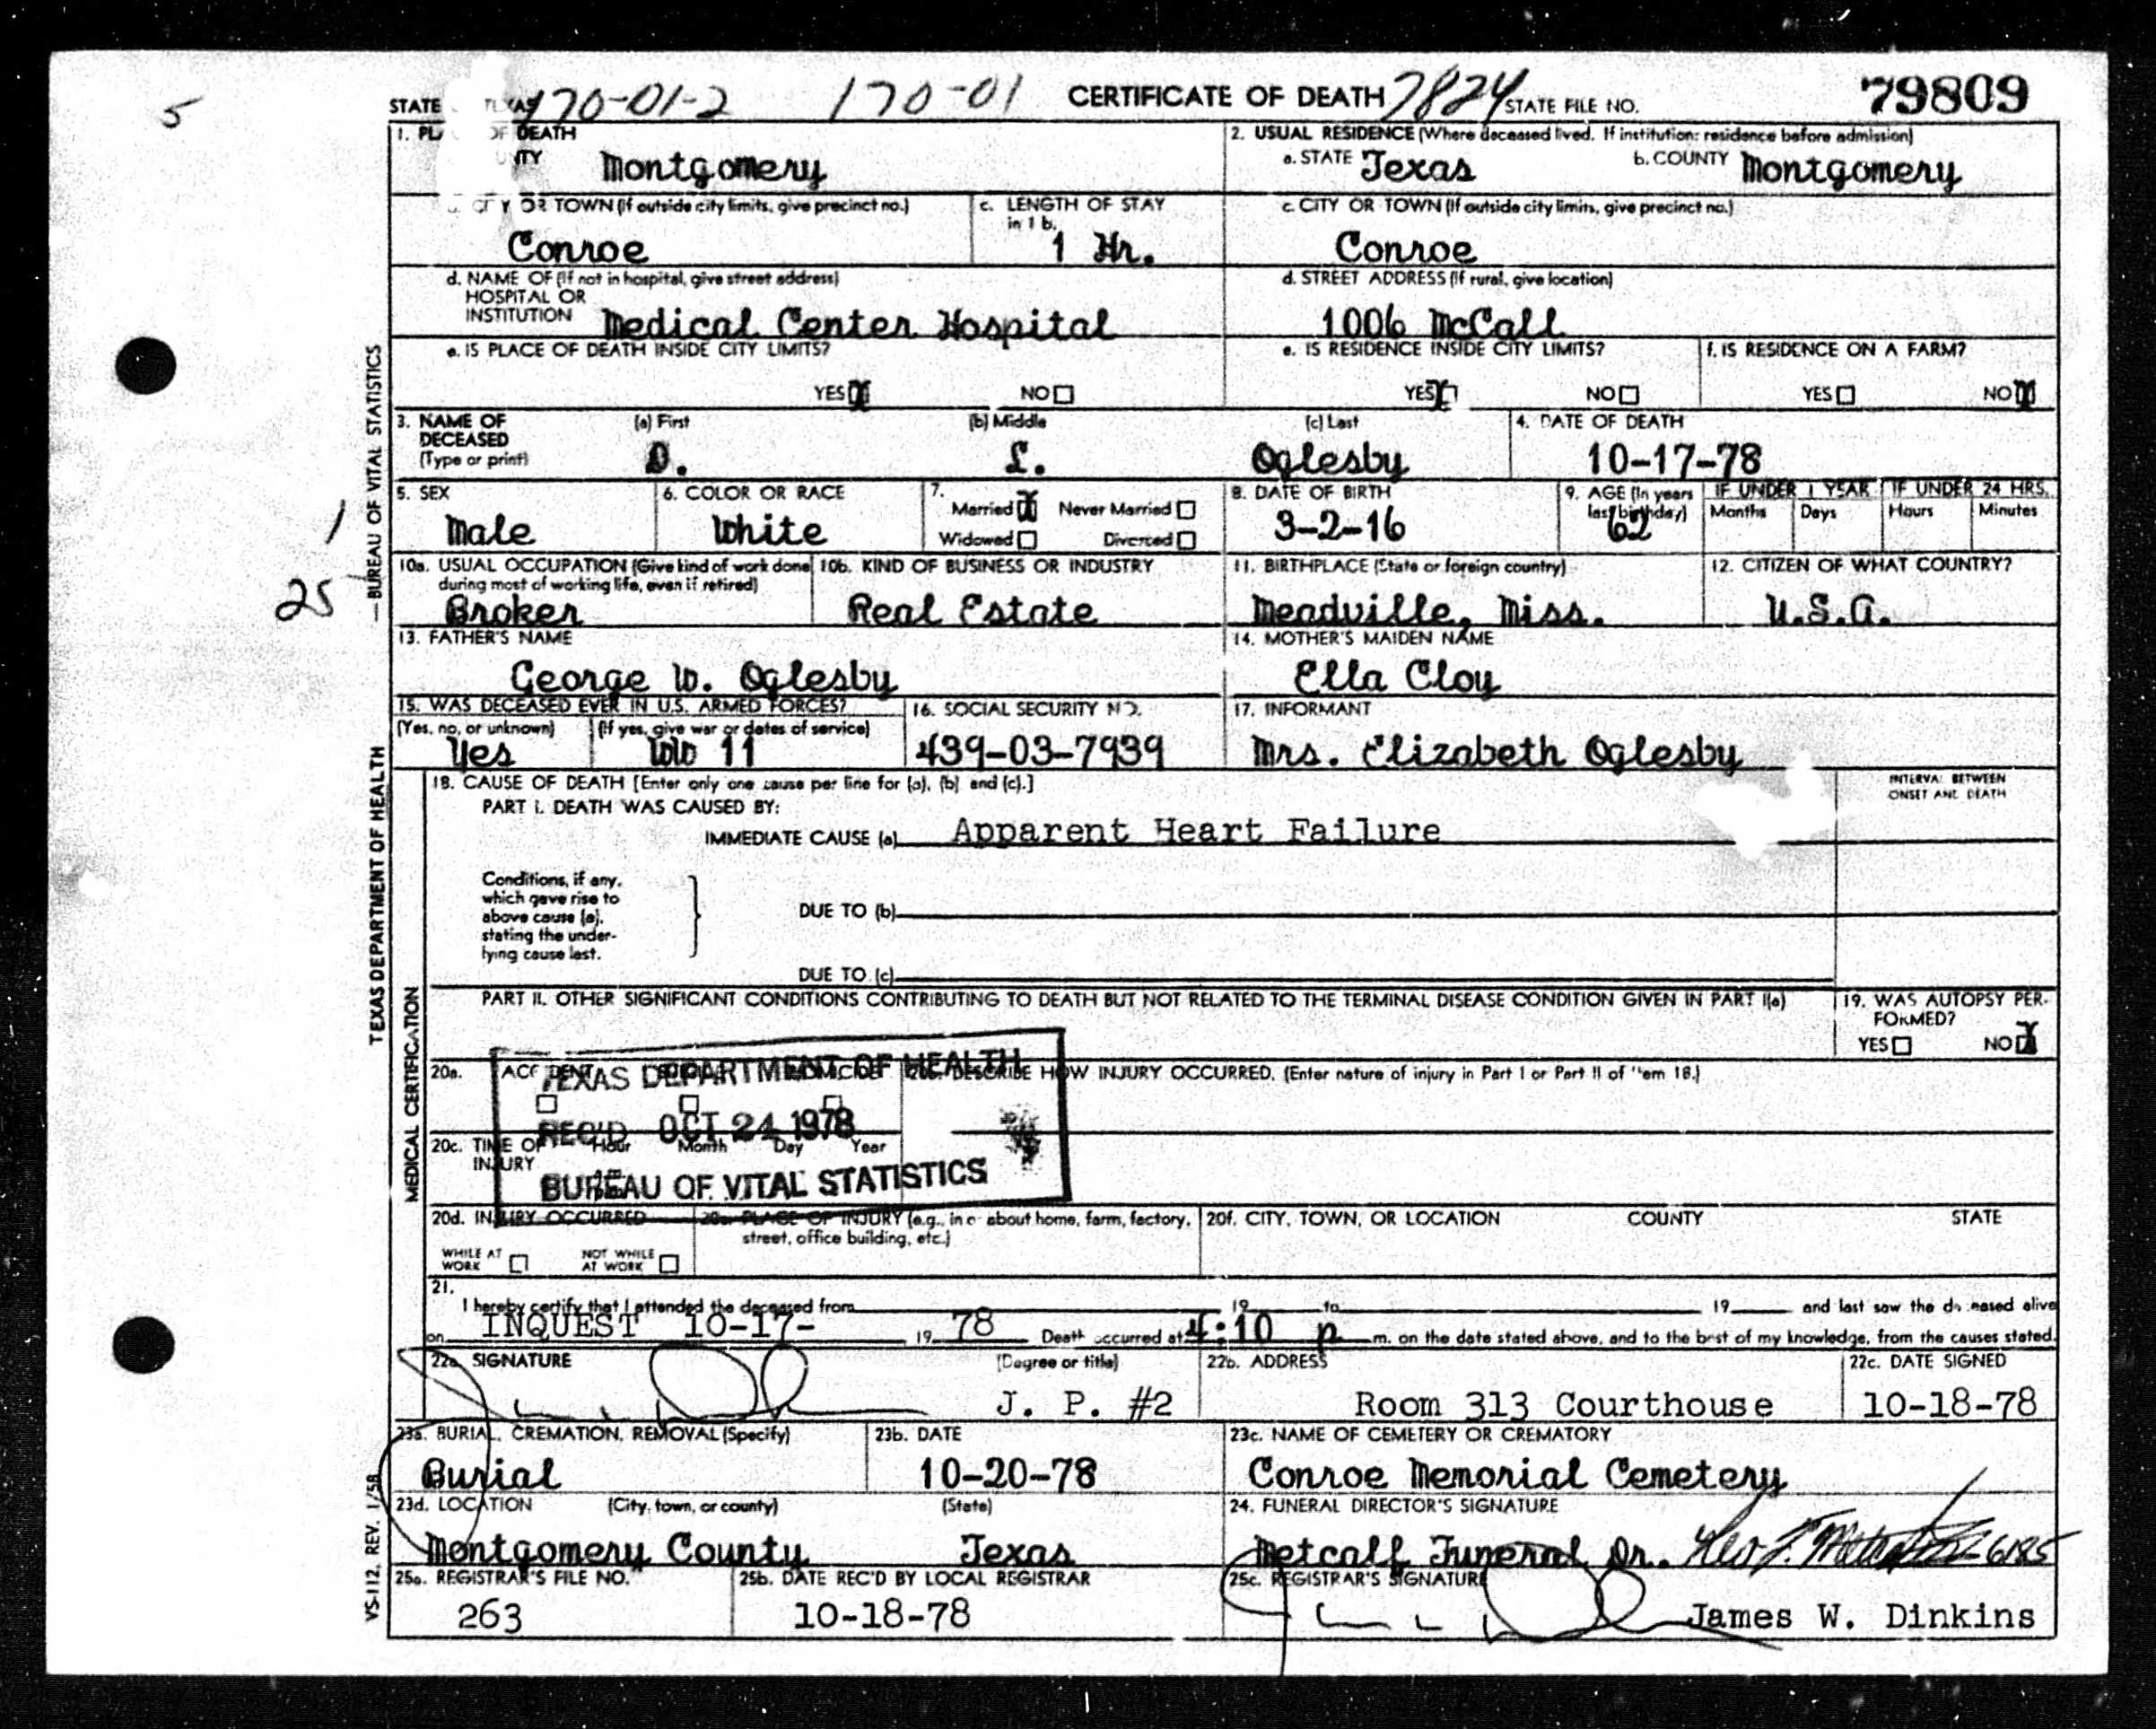 5
170-01-2 170-01 CERTIFICATE OF DEATH 7824 STATE FILE NO. 79809
STATE TEXAS
1. PL OF DEATH
NTY Montgomery
2. USUAL RESIDENCE (Where deceased lived. If institution: residence before admission)
a. STATE Texas b. COUNTY Montgomery
CITY OR TOWN (If outside city limits, give precinct no.)
Conroe
c. LENGTH OF STAY in 1 b.
1 Hr.
c. CITY OR TOWN (If outside city limits, give precinct no.)
Conroe
d. NAME OF (If not in hospital, give street address)
HOSPITAL OR
INSTITUTION Medical Center Hospital
d. STREET ADDRESS (If rural, give location)
1006 McCall
e. IS PLACE OF DEATH INSIDE CITY LIMITS?
YES X NO
e. IS RESIDENCE INSIDE CITY LIMITS?
YES X NO
f. IS RESIDENCE ON A FARM?
YES NO X
3. NAME OF DECEASED (Type or print)
(a) First (b) Middle (c) Last
D. L. Oglesby
4. DATE OF DEATH
10-17-78
5. SEX
Male
6. COLOR OR RACE
White
7. Married X Never Married
Widowed Divorced
8. DATE OF BIRTH
3-2-16
9. AGE (In years last birthday)
62
IF UNDER 1 YEAR
Months Days
IF UNDER 24 HRS.
Hours Minutes
1
25
10a. USUAL OCCUPATION (Give kind of work done during most of working life, even if retired)
Broker
10b. KIND OF BUSINESS OR INDUSTRY
Real Estate
11. BIRTHPLACE (State or foreign country)
Meadville, Miss.
12. CITIZEN OF WHAT COUNTRY?
U.S.A.
13. FATHER'S NAME
George W. Oglesby
14. MOTHER'S MAIDEN NAME
Ella Cloy
15. WAS DECEASED EVER IN U.S. ARMED FORCES?
(Yes, no, or unknown) (If yes, give war or dates of service)
Yes WW 11
16. SOCIAL SECURITY NO.
439-03-7939
17. INFORMANT
Mrs. Elizabeth Oglesby
18. CAUSE OF DEATH [Enter only one cause per line for (a), (b) and (c).]
INTERVAL BETWEEN
ONSET AND DEATH
PART I. DEATH WAS CAUSED BY:
IMMEDIATE CAUSE (a) Apparent Heart Failure
Conditions, if any,
which gave rise to
above cause (a),
stating the under-
lying cause last.
DUE TO (b)
DUE TO (c)
PART II. OTHER SIGNIFICANT CONDITIONS CONTRIBUTING TO DEATH BUT NOT RELATED TO THE TERMINAL DISEASE CONDITION GIVEN IN PART I(a)
19. WAS AUTOPSY PER-
FORMED?
YES NO X
20a. ACCIDENT
20b. DESCRIBE HOW INJURY OCCURRED. (Enter nature of injury in Part I or Part II of item 18.)
TEXAS DEPARTMENT OF HEALTH
REC'D OCT 24 1978
BUREAU OF VITAL STATISTICS
20c. TIME OF INJURY
Hour Month Day Year
20d. INJURY OCCURRED
WHILE AT WORK NOT WHILE AT WORK
20e. PLACE OF INJURY (e.g., in or about home, farm, factory, street, office building, etc.)
20f. CITY, TOWN, OR LOCATION COUNTY STATE
21.
I hereby certify that I attended the deceased from 19 to 19 and last saw the deceased alive
on INQUEST 10-17- 19 78 Death occurred at 4:10 p m. on the date stated above, and to the best of my knowledge, from the causes stated.
22a. SIGNATURE (Degree or title)
J. P. #2
22b. ADDRESS
Room 313 Courthouse
22c. DATE SIGNED
10-18-78
23a. BURIAL, CREMATION, REMOVAL (Specify)
Burial
23b. DATE
10-20-78
23c. NAME OF CEMETERY OR CREMATORY
Conroe Memorial Cemetery
23d. LOCATION (City, town, or county) (State)
Montgomery County Texas
24. FUNERAL DIRECTOR'S SIGNATURE
Metcalf Funeral Dr. 6185
25a. REGISTRAR'S FILE NO.
263
25b. DATE REC'D BY LOCAL REGISTRAR
10-18-78
25c. REGISTRAR'S SIGNATURE
James W. Dinkins
MEDICAL CERTIFICATION
TEXAS DEPARTMENT OF HEALTH—BUREAU OF VITAL STATISTICS
VS-112, REV. 1/58